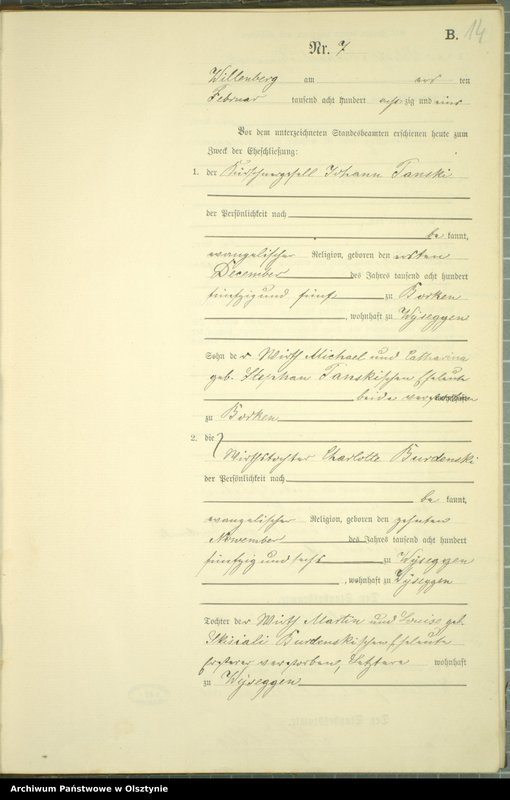 B. 14
Nr. 7
Willenberg am ersten
Februar tausend acht hundert achtzig und eins
Vor dem unterzeichneten Standesbeamten erschienen heute zum
Zweck der Eheschließung:
1. der Johann Tanski
der Persönlichkeit nach
be kannt,
evangelischer Religion, geboren den ersten
December des Jahres tausend acht hundert
fünfzig und fünf zu Borken
, wohnhaft zu Wyseggen
Sohn der Wirth Michael und Catharina
geb. Stephan Tanskischen Eheleute
beide verstorben
zu Borken
2. die
Wirthstochter Charlotte Burdenski
der Persönlichkeit nach
be kannt,
evangelischer Religion, geboren den zehnten
November des Jahres tausend acht hundert
fünfzig und sechs zu Wyseggen
, wohnhaft zu Wyseggen
Tochter der Wirth Martin und Louise geb.
Burdenskischen Eheleute
Ersterer verstorben, Letztere wohnhaft
zu Wyseggen
Archiwum Państwowe w Olsztynie